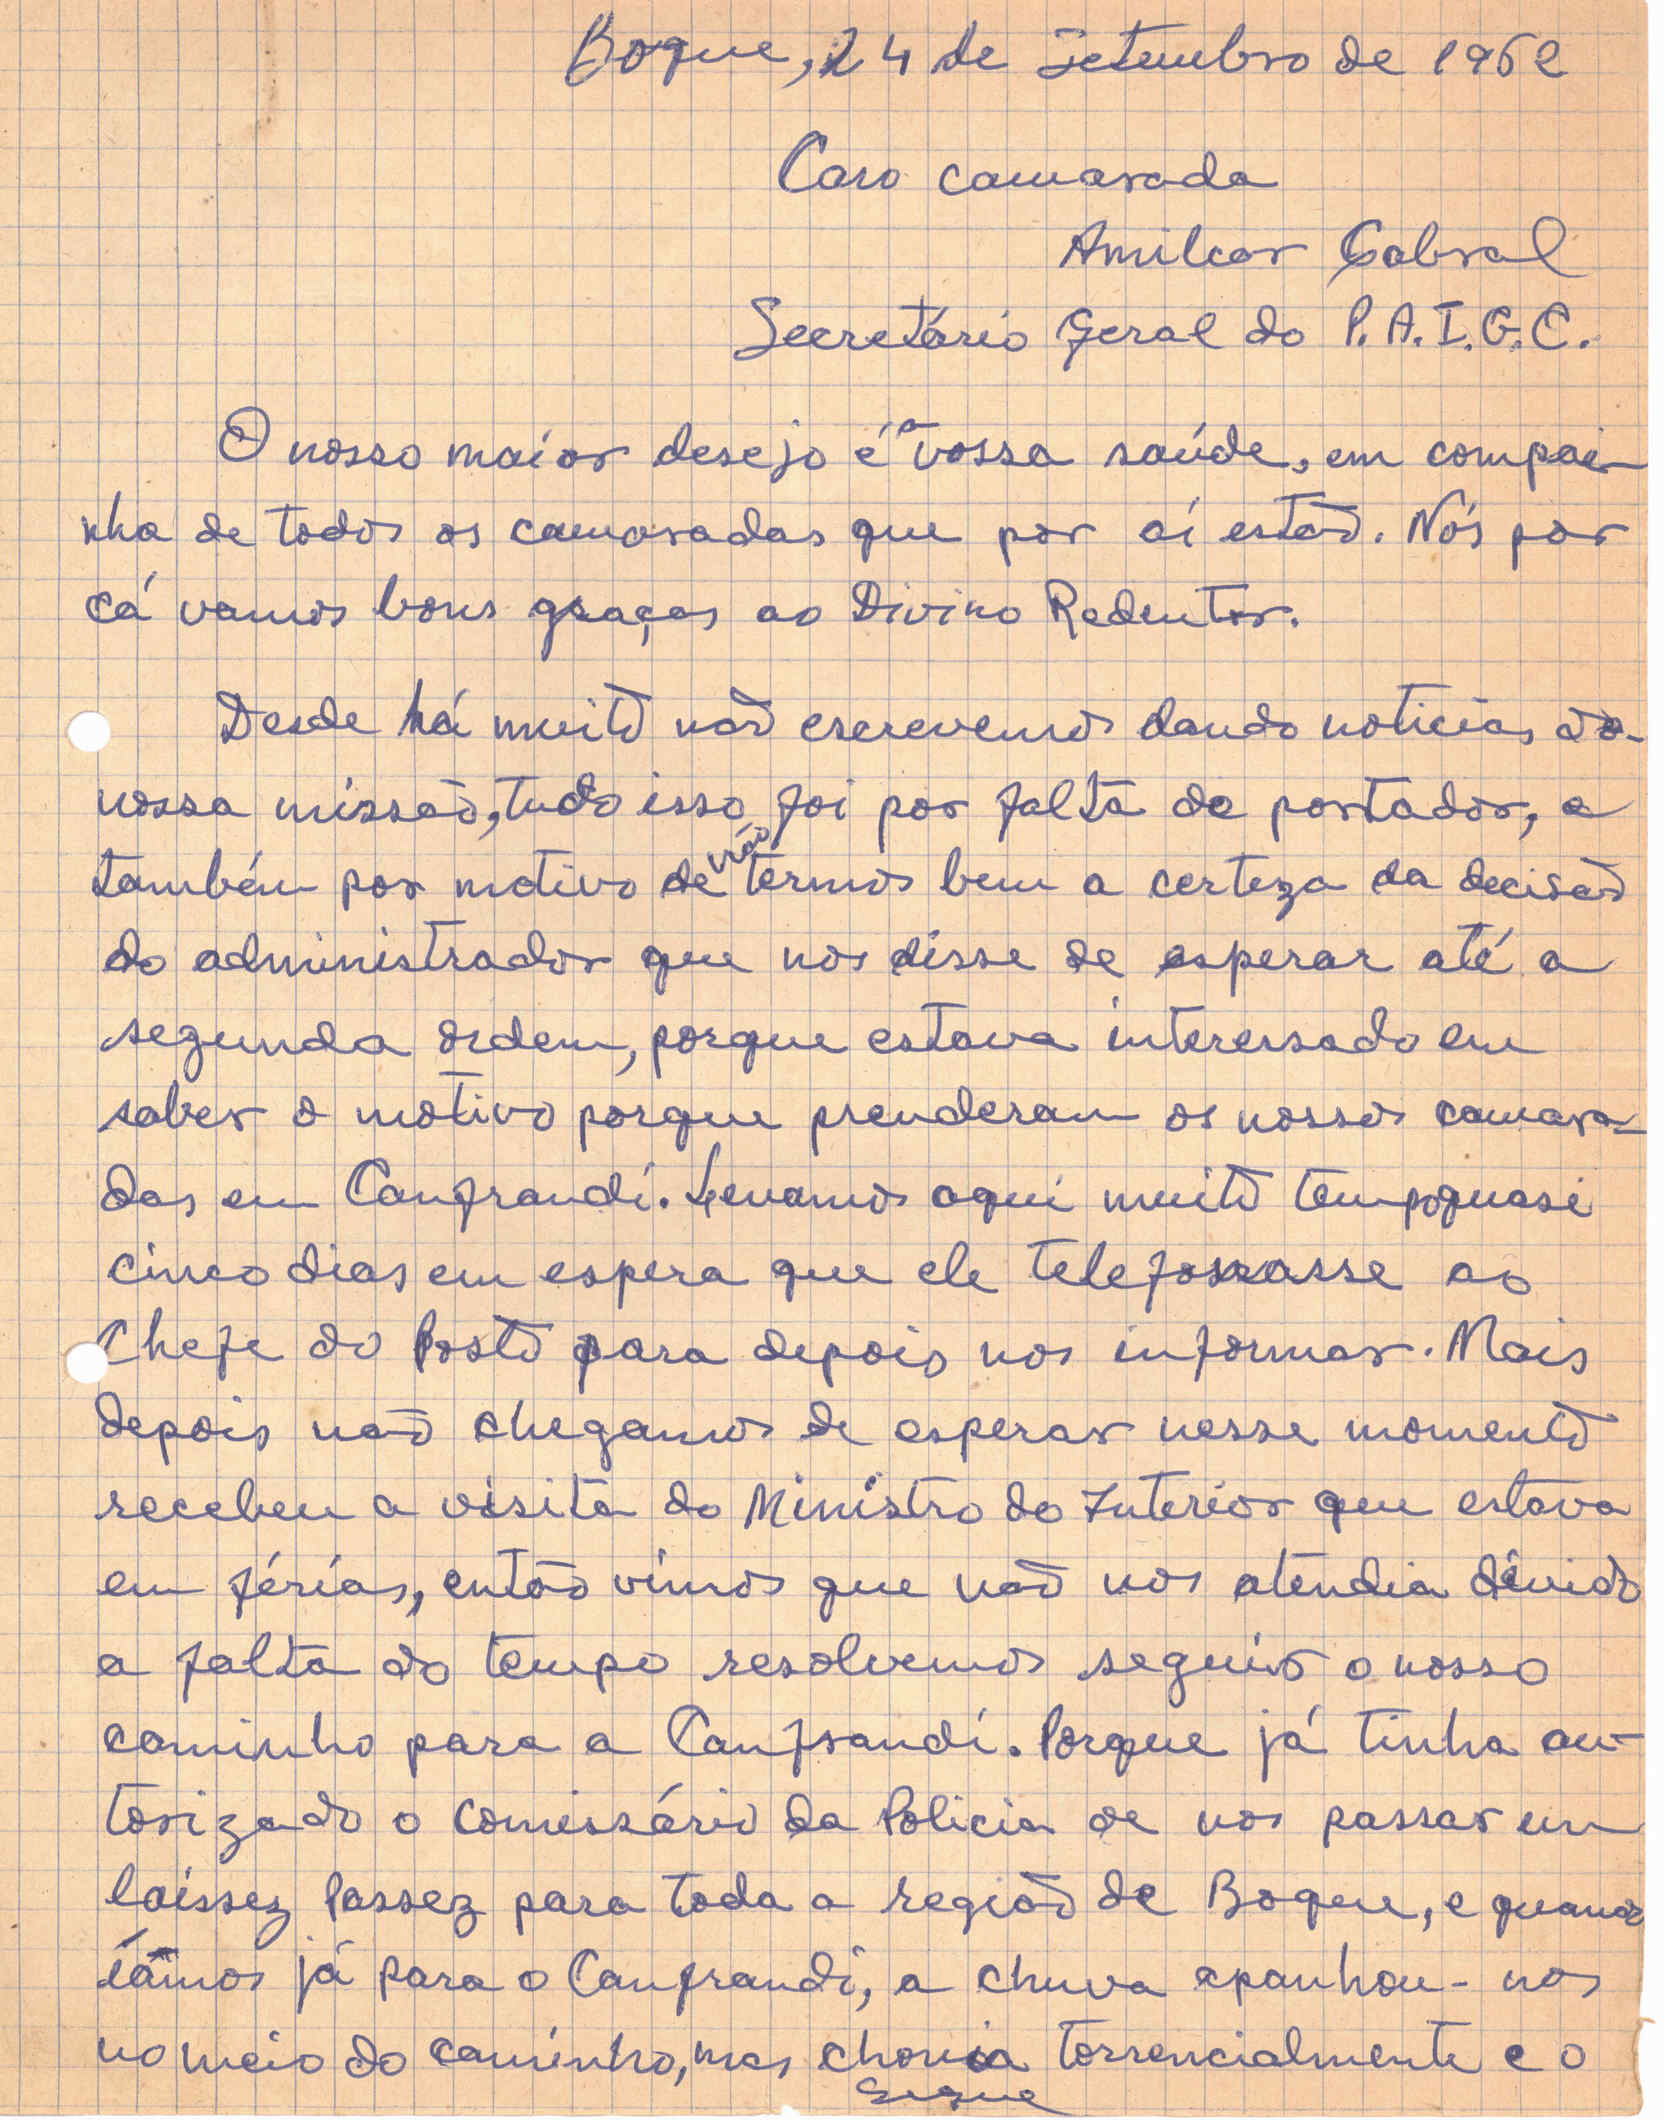 Boque, 24 de Setembro de 1962
Caro camarada
Amilcar Cabral
Secretário Geral do P.A.I.G.C.
O nosso maior desejo é a vossa saúde, em compai-
nha de todos os camaradas que por aí estão. Nós por
cá vamos bons graças ao Divino Redentor.
Desde há muito não escrevemos dando noticias da
nossa missão, tudo isso foi por falta de portador, e
também por motivo de não têrmos bem a certeza da decisão
do administrador que nos disse de esperar até a
segunda ordem, porque estava interessado em
saber o motivo porque prenderam os nossos camara-
das em Canfrandi. Levamos aqui muito tempo quasi
cinco dias em espera que ele telefonasse ao
Chefe do Posto para depois nos informar. Mais
depois não chegamos de esperar nesse momento
recebeu a visita do Ministro do Interior que estava
em férias, então vimos que não nos atendia dévido
a falta do tempo resolvemos seguir o nosso
caminho para a Canfrandi. Porque já tinha au-
torizado o Comissário da Policia de nos passar um
laissez Passez para toda a região de Boque, e quando
iámos já para o Canfrandi, a chuva apanhou-nos
no meio do caminho, mas chovia torrencialmente e o
Segue